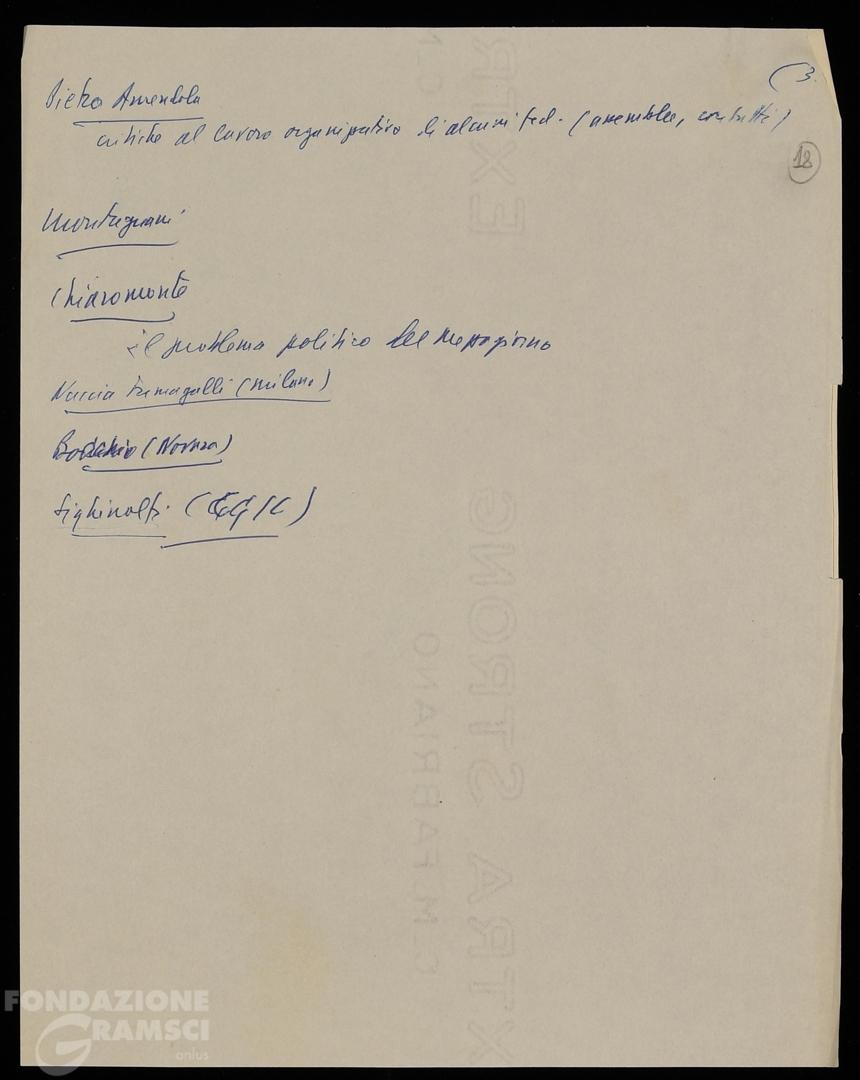 (3.
Pietro Amendola
critiche al lavoro organizzativo di alcuni fed. (assemblee, contatti)
18
Montagnani
Chiaromonte
il problema politico del Mezzogiorno
Nuccia Fumagalli (Milano)
(Novara)
Sighinolfi (CGIL)
EXTRA STRONG
G. M. FABRIANO
FONDAZIONE
GRAMSCI
onlus